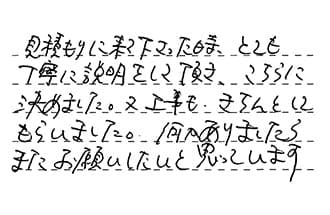 見積もりに来て下さった時、とても
丁寧に説明をして頂き、こちらに
決めました。又工事も、きちんとして
もらいました。何かありましたら
またお願いしたいと思っています